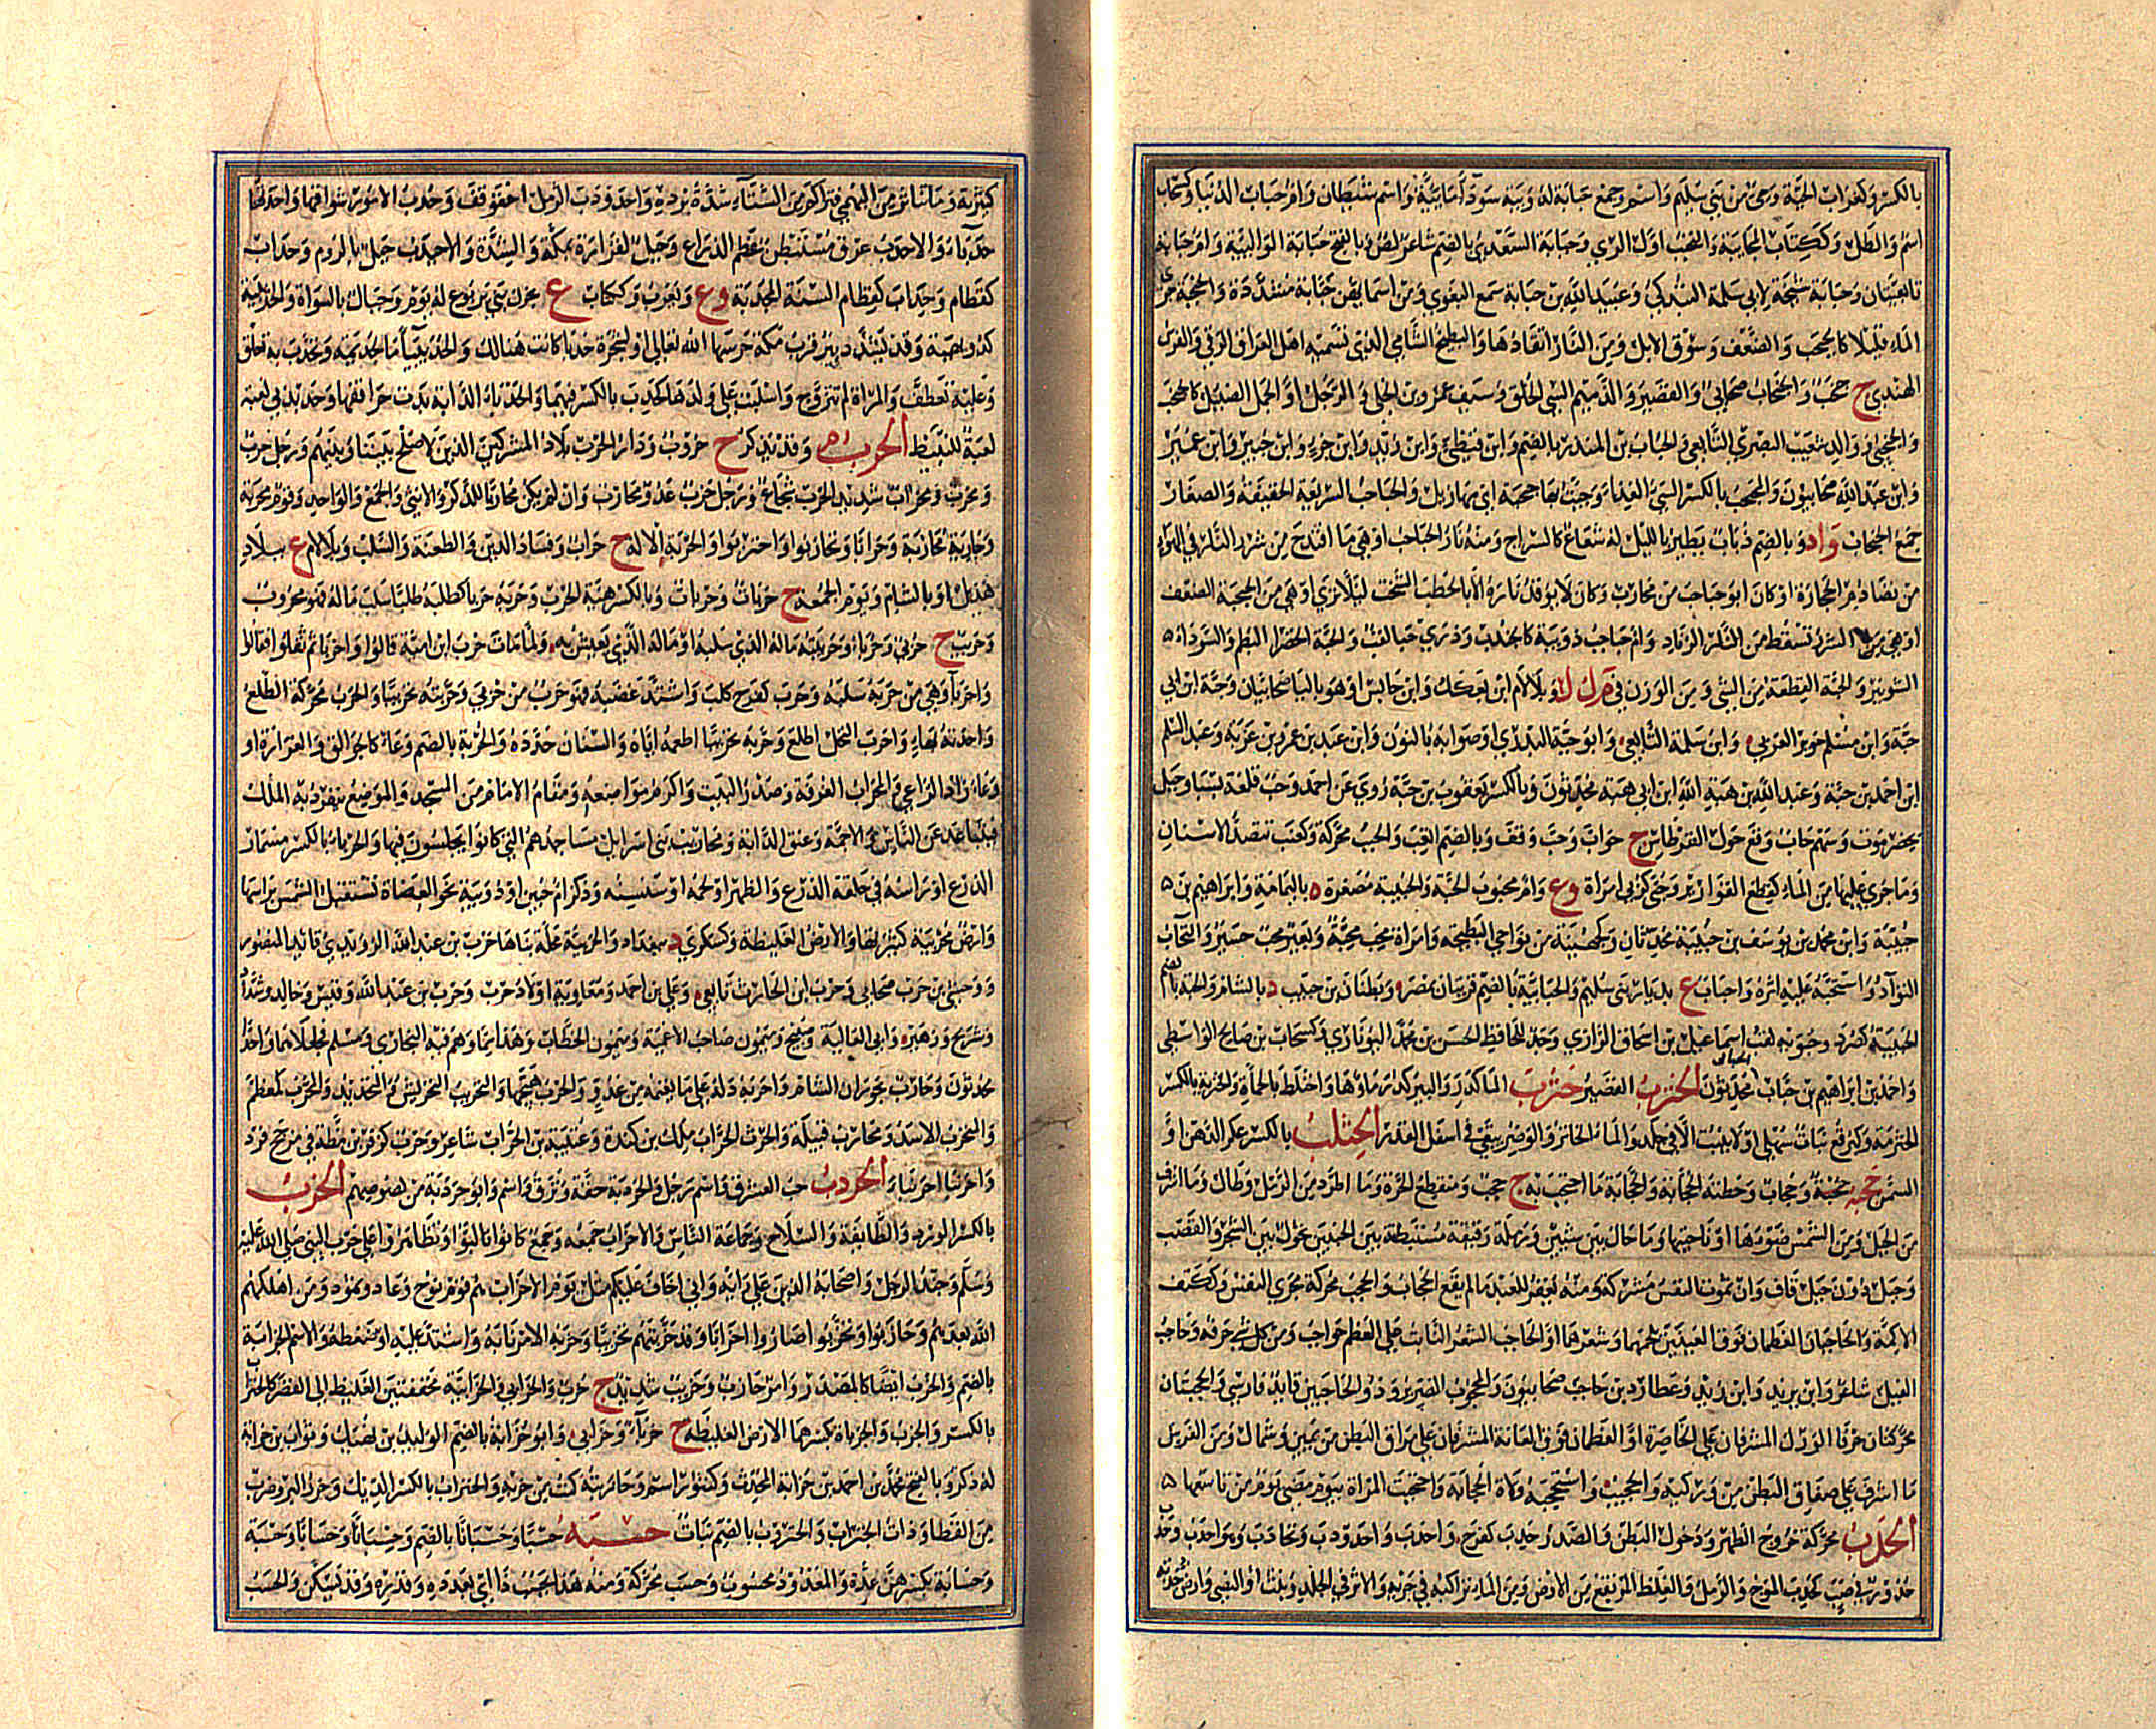 بالكسر وكغراب الحية وحي من بني سليم واسم وجمع حبابة لدويبة سوداء مائية واسم شيطان وام حباب الدنيا وكسحاب
اسم والطل وككتاب المحاببة والتحبب اول الري وحبابة السعدي بالضم شاعر لص وبالفتح حبابة الوالبية وام حبابة
تابعيتان وحبابة شيخة لابي سلمة التبوذكي وعبيد الله بن حبابة سمع البغوي ومن اسمايهن حبابة مشددة والحبحبة جري
الماء قليلا كالحبحب والضعف وسوق الابل ومن النار اتقادها والبطيخ الشامي الذي تسميه اهل العراق الرقي والفرس
الهندي ج حبحب والحبحاب صحابي والقصير والدميم السيئ الخلق وسيف عمرو بن الخلي و الرجل او الجمل الضئيل كالحبحب
والحبحبي و والد شعيب البصري التابعي والحباب بن المنذر بالضم وابن قيظي وابن زيد وابن جزء وابن جبير وابن عمير
وابن عبد الله صحابيون والمحبحب بالكسر السيئ الغذاء وجئت بها حبحبة اي مهازيل والحباحب السريعة الخفيفة والصغار
جمع الحبحاب واد وبالضم ذباب يطير بالليل له شعاع كالسراج ومنه نار الحباحب او هي ما اقتدح من شرر النار في الهواء
من تصادم الحجارة او كان ابو حباحب من محارب وكان لا يوقد ناره الا بالحطب الشخت ليلا ترى او هي من الحبحبة الضعف
او هي من الشرر تسقط من الزناد وام حباحب دويبة كالجندب وذري حبا لقب والحبة الخضراء البطم والسوداء
الشونيز والحبة القطعة من الشئ ومن الوزن في م ك ك وبلا لام ابن بعكك وابن حابس او هو بالياء صحابيان وحبة ابن ابي
حبة وابن مسلم وابن سلمة التابعي وابو حبة البدري او صوابه بالنون وابن عبد بن عمرو بن غزية وعبد السلم
ابن احمد بن حبة وعبد الله بن هبة الله ابن ابي هبة محدثون وبالكسر يعقوب بن حبة روي عن احمد وحب قلعة بسبا وجبل
بحضرموت وسهم حاب وقع حول القرطاس ج حواب وحب وقف وبالضم اتعب والحبب محركة وكعنب تنضد الاسنان
وما جري عليها من الماء كقطع القوارير وحبى كربى امراة وع وام محبوب الحية والحبيبة مصغرة ة باليمامة وابراهيم بن
حبيبة وابن محمد بن يوسف بن حبيبة محدثان وكجهينة من نواحي البطيحة وامراة محب محبة وبعير محب حسير والتحاب
التواد واستحبه عليه اثره واحباب ع بديار بني سليم والحبابية بالضم قريتان بمصر وبطنان حبيب د بالشام والحبة بالضم
الحبيبة كصرد وحبويه لقب اسماعيل بن اسحاق الرازي وجد للحافظ الحسن بن محمد اليونارتي وكسحاب بن صالح الواسطي
واحمد بن ابراهيم بن حباب محدثون الحترب القصير حثرب الماء كدر والبئر كدر ماؤها واختلط بالحماة والحثربة بالكسر
الحثرمة وكبرقع نبات سهلي او لا ينبت الا في جلد والماء الخاثر والوضر يبقي في اسفل القدر الحثلب بالكسر عكر الدهن او
السمن حجبه حجبة وحجاب وخطته الحجابة والحجابة ما احتجب به ج حجب ومنقطع الحرة وما اطرد من الرمل وطال وما اشرف
من الجبل ومن الشمس ضوؤها او ناحيتها وما حال بين شيئين ورملة وقيقة مستبطنة بين الجنبين تحول بين السحر والقصب
وجبل دون جبل قاف وان تموت النفس مشركة ومنه يغفر للعبد ما لم يقع الحجاب والحجب محركة مجري النفس وككتف
الاكمة والحاجبان العظمان فوق العينين بلحمهما وشعرهما او الحاجب الشعر النابت على العظم حواجب ومن كل شئ حرفه وحاجب
الفيل شاعر وابن يزيد وابن زيد وعطارد بن حاجب صحابيون والمحجوب الضرير وذو الحاجبين قايد فارسي والحجبتان
محركتان حرفا الورك المشرفان على الخاصرة او العظمان فوق العانة المشرفان على مراق البطن من يمين وشمال ومن الفرس
ما اشرف على صفاق البطن من وركيه والحجيب ع واستحجبه ولاه الحجابة واحتجبت المراة بيوم مضي يوم من تاسعها
الحدب محركة خروج الظهر ودخول البطن والصدر حدب كفرح واحدب واحدودب وتحادب وهو احدب وحدب
حدور في صبب كحدب الموج والرمل والغلظ المرتفع من الارض ومن الماء تراكبه في جريه والاثر في الجلد ونبت او النصي وارض حدبة
كثيرته وما تناثر من البهمي فتراكم ومن الشتاء شدة برده واحدودب الرمل احقوقف وحدب الامور شواقها واحدتها
حدباء والاحدب عرق مستبطن عظم الذراع وجبل لفزارة بمكة والشدة والاحيدب جبل بالروم وحداب
كقطام وحداب كقطام السنة المجدبة وع ويعرب وككتاب ع بحزن بني يربوع له يوم وجبال بالسراة والحديبية
كدويهية وقد تشدد بئر قرب مكة حرسها الله تعالي او لشجرة حدباء كانت هنالك والحديباء ماء لجذيمة وتحدب به تعلق
وعليه تعطف والمراة لم تتزوج واشبلت على ولدها كحدب بالكسر فيهما والحدباء الدابة بدت حراقفها وحديدبي لعبة
لعبة للنبيط الحرب م وقد تذكر ج حروب ودار الحرب بلاد المشركين الذين لا صلح بيننا وبينهم ورجل حرب
ومحرب ومحراب شديد الحرب شجاع ورجل حرب عدو محارب وان لم يكن محاربا للذكر والانثي والجمع والواحد وقوم محربة
وحاربه محاربة وحرابا وتحاربوا واحتربوا والحربة الالة ج حراب وفساد الدين والطعنة والسلب وبلا لام ع ببلاد
هذيل او بالشام ويوم الجمعة ج حربات وحربات وبالكسر هيئة الحرب وحربه حربا كطلبه طلبا سلب ماله فهو محروب
وحريب ج حربي وحرباء وحريبته ماله الذي سلبه او ماله الذي يعيش به ولما مات حرب ابن امية قالوا واحربا ثم ثقلوا فقالوا
واحربا او هي من حربه سلبه وحرب كفرح كلب واشتد غضبه فهو حرب من حربي وحربته تحريبا والحرب محركة الطلع
واحدته بهاء واحرب النخل اطلع وحربه تحريبا اطعمه اياه والسنان حدده والحربة بالضم وعاء كالجوالق و الغرارة او
وعاء زاد الراعي و المحراب الغرفة وصدر البيت واكرم مواضعه ومقام الامام من المسجد والموضع ينفرد به الملك
فيتباعد عن الناس والاجمة وعنق الدابة ومحاريب بني اسرايل مساجدهم التي كانوا يجلسون فيها والحرباء بالكسر مسمار
الدرع او راسه في حلقة الدرع والظهر او لحمه او سنسنه وذكر ام حبين او دويبة نحو العضاة تستقبل الشمس براسها
وارض محربية كثيرتها والارض الغليظة وكسكري د ببغداد والحربية محلة بناها حرب بن عبد الله الراوندي قايد المنصور
ووحشي بن حرب صحابي وحرب ابن الحارث تابعي وعلي بن احمد ومعاوية اولاد حرب وحرب بن عبد الله وقيس وخالد وشداد
وشريح وزهير وابي العالية وصبيح وميمون صاحب الاغمية وميمون ابي الخطاب وهذا مما وهم فيه البخاري ومسلم فجعلاهما واحدا
محدثون وحارب ع بحوران الشام واحربه دله على ما يغنمه من عدو والحرب هيجها والتحريب التحريش والتحديد والمحرب كمعظم
والمتحرب الاسد ومحارب قبيلة والحرث الحراب ملك بن كندة وعتيبة بن الحراب شاعر وحرب كزفر بن مظة في مذحج فرد
واحرنبا احرنباء الحردب حب العشرق واسم رجل والحردبة خفة ونزق واسم وابو حردبة من لصوصهم الحزب
بالكسر الورد والطايفة والسلاح وجماعة الناس والاحزاب جمعه وجمع كانوا تالبوا وتظاهروا على حزب النبي صلى الله عليه
وسلم وجند الرجل واصحابه الذين على رايه واني اخاف عليكم مثل يوم الاحزاب هم قوم نوح وعاد وثمود ومن اهلكهم
الله بعدهم وحازبوا وتحزبوا صاروا احزابا وقد حزبتهم تحزيبا وحزبه الامر نابه واشتد عليه او ضغطه والاسم الحزابة
بالضم والحزب ايضا كالمصدر وامر حازب وحزيب شديد ج حزب والحزابي والحزابية مخففتين الغليظ الي القصر كالحنزاب
بالكسر والحزب والحزباة بكسرهما الارض الغليظة ج حزباء وحزابي وابو حزابة بالضم الوليد بن نهيك وثواب بن حزابة
له ذكر وبالفتح محمد بن احمد بن حزابة المحدث وكتنور اسم وحازبته كنت من حزبه والحنزاب بالكسر الديك وجزر البر وضرب
من القطا وذات الحنزاب ع والحنزوب بالضم نبات حسبه حسبا وحسبانا بالضم وحسبانا وحسابا وحسبة
وحسابة بكسرهن عده والمعدود محسوب وحسب محركة ومنه هذا بحسب ذا اي بعدده وقدره وقد يسكن والحسب